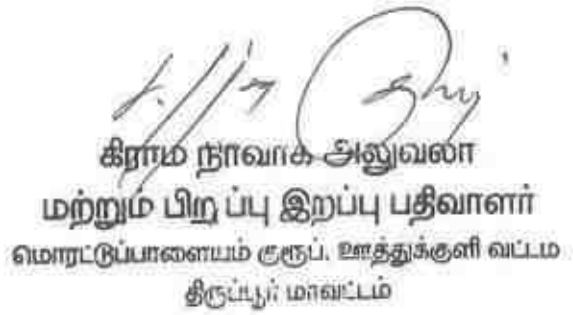 கிராம நிர்வாக அலுவலர்
மற்றும் பிறப்பு இறப்பு பதிவாளர்
மொரட்டுப்பாளையம் குரூப். ஊத்துக்குளி வட்டம்
திருப்பூர் மாவட்டம்